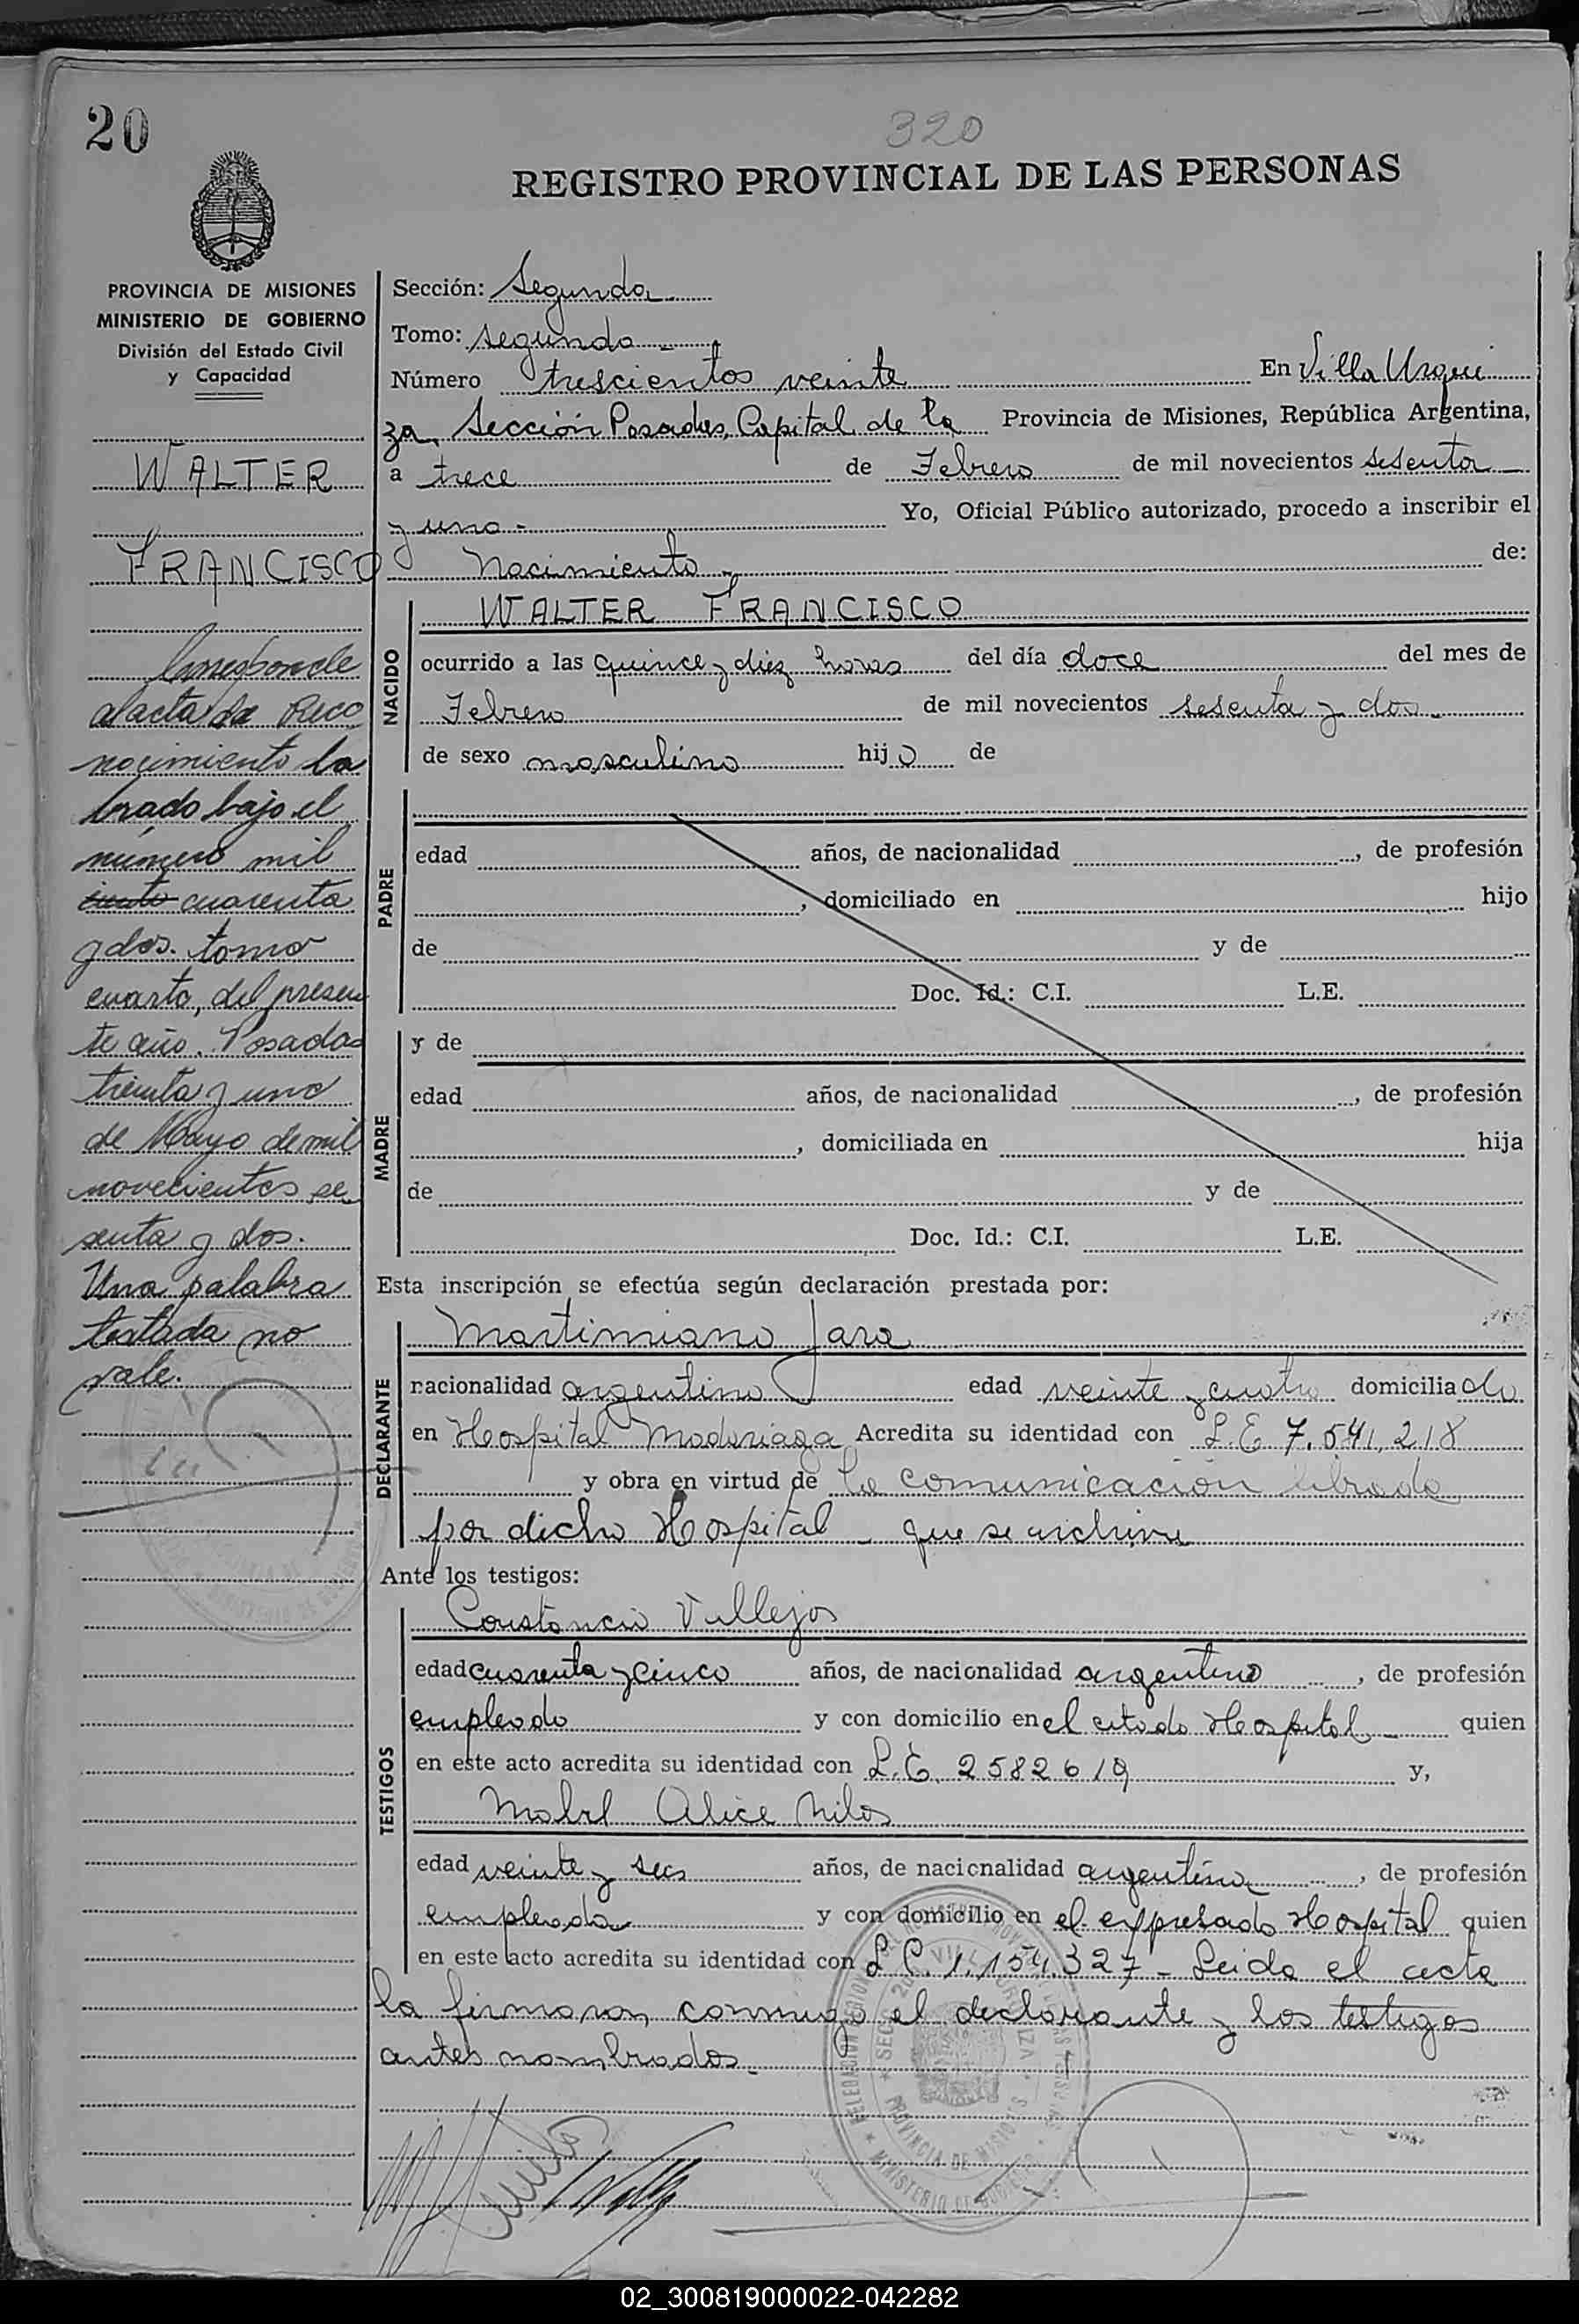 20
320
REGISTRO PROVINCIAL DE LAS PERSONAS
PROVINCIA DE MISIONES
MINISTERIO DE GOBIERNO
División del Estado Civil
y Capacidad
WALTER
FRANCISCO
Corresponde
al acta de Reco
nocimiento la
brado bajo el
número mil
ciento cuarenta
y dos. tomo
cuarto, del presen
te año. Posadas
treinta y uno
de Mayo de mil
novecientos se
senta y dos.
Una palabra
testada no
vale.
Sección: Segunda
Tomo: segundo
Número trescientos veinte En Villa Urqui
za, Sección Posadas, Capital de la Provincia de Misiones, República Argentina,
a trece de Febrero de mil novecientos sesenta
y uno - Yo, Oficial Público autorizado, procedo a inscribir el
Nacimiento - de:
NACIDO
WALTER FRANCISCO
ocurrido a las quince y diez horas del día doce del mes de
Febrero de mil novecientos sesenta y dos -
de sexo masculino hijo de
PADRE
edad años, de nacionalidad , de profesión
, domiciliado en hijo
de y de
Doc. Id.: C.I. L.E.
MADRE
y de
edad años, de nacionalidad , de profesión
, domiciliada en hija
de y de
Doc. Id.: C.I. L.E.
Esta inscripción se efectúa según declaración prestada por:
DECLARANTE
Martimiano Jara
nacionalidad argentino edad veinte y cuatro domiciliado
en Hospital Madariaga Acredita su identidad con L.E 7.541.218
y obra en virtud de la comunicación librada
por dicho Hospital - que se archiva
Ante los testigos:
TESTIGOS
Constancio Vallejos
edad cuarenta y cinco años, de nacionalidad argentino , de profesión
empleado y con domicilio en el citado Hospital - quien
en este acto acredita su identidad con L.E. 2582619 y,
Mabel Alice
edad veinte y seis años, de nacionalidad argentina , de profesión
empleada y con domicilio en el expresado Hospital quien
en este acto acredita su identidad con L.C. 1.154.327 - Leida el acta
la firmaron conmigo el declarante y los testigos
antes nombrados.-
PROVINCIA DE MISIONES
MINISTERIO DE GOBIERNO
02_300819000022-042282